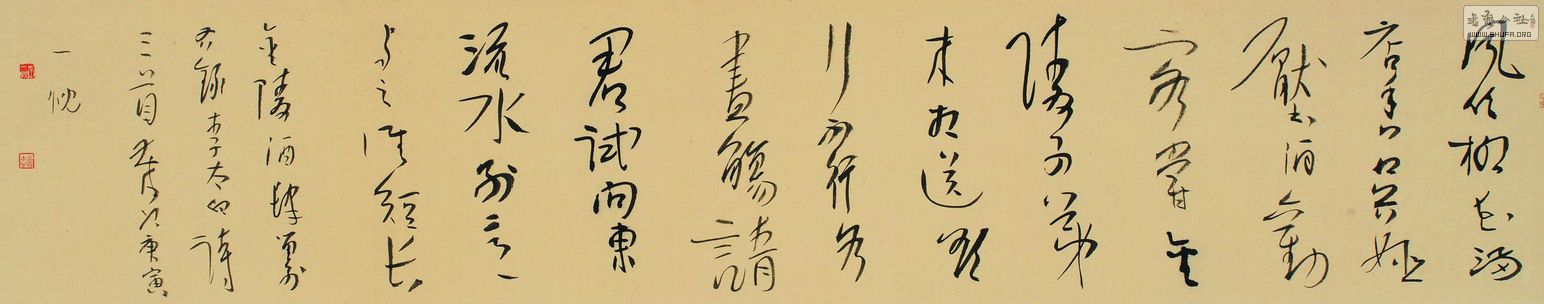 風吹柳花滿
店香吳姬
壓酒勸
客嘗金
陵子弟
來相送欲
行不行各
盡觴請
君試問東
流水別意
與之誰短長
金陵酒肆留別
右錄李太白詩
三首歲次庚寅
一
WWW.SHUFA.ORG